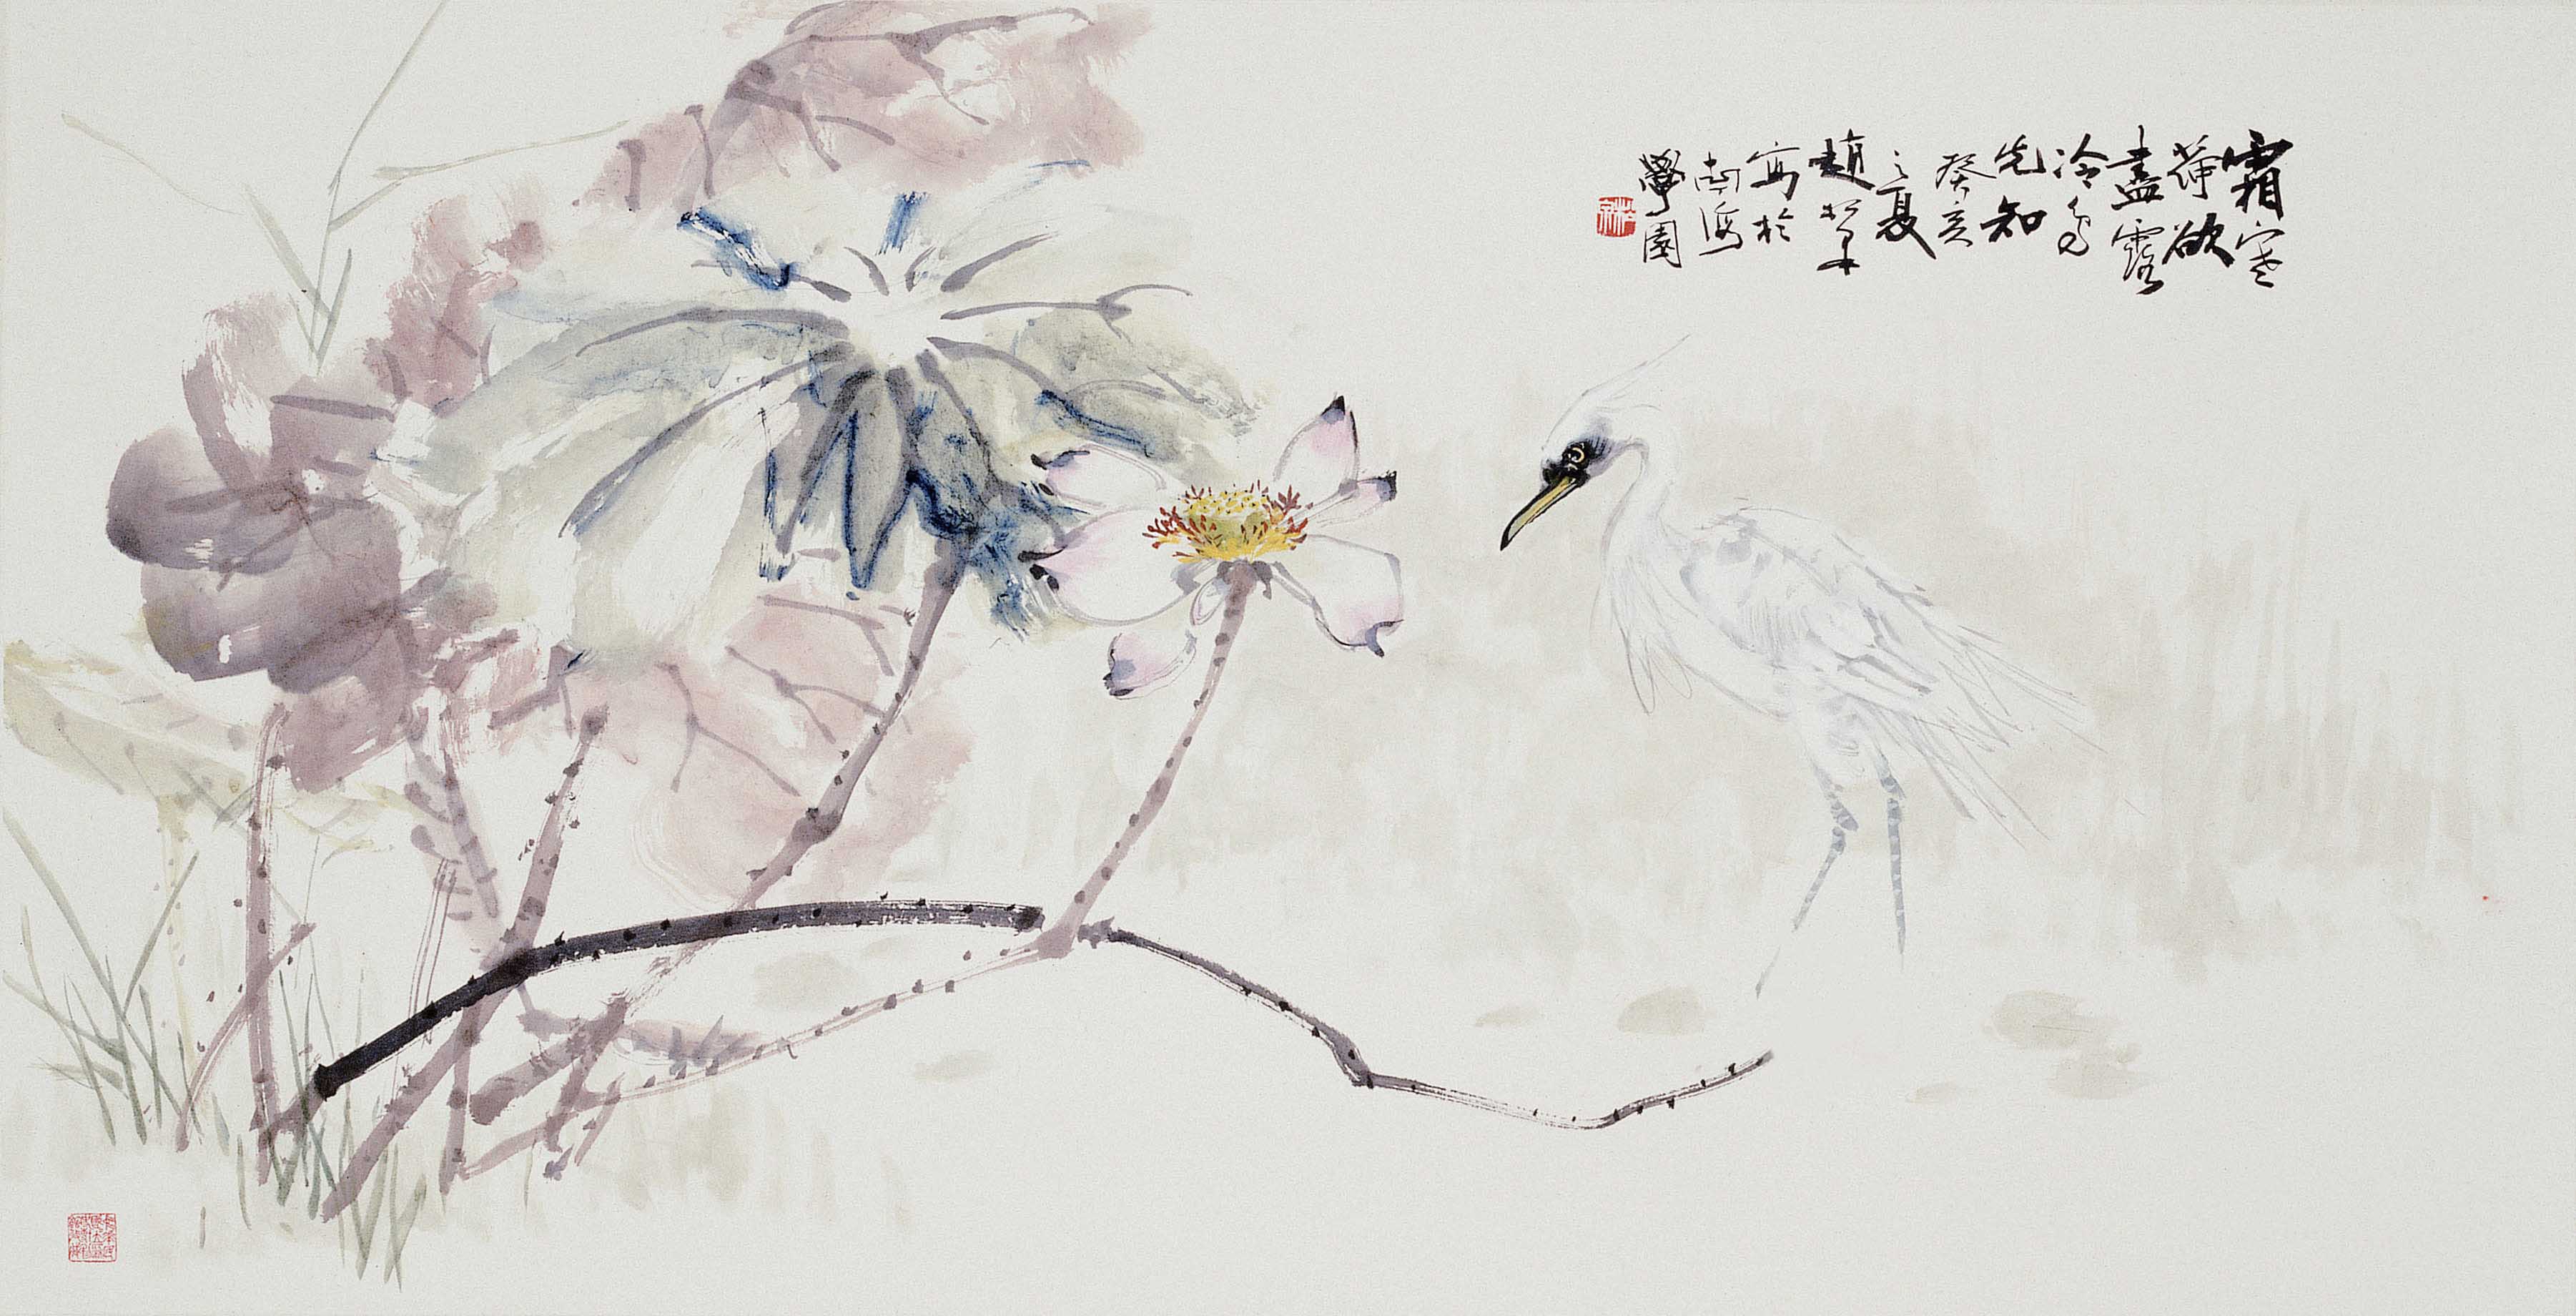 霜寒
荷欲
盡露
冷鳥
先知
癸亥
之夏
趙松泉
寫於
南海
學園
松泉